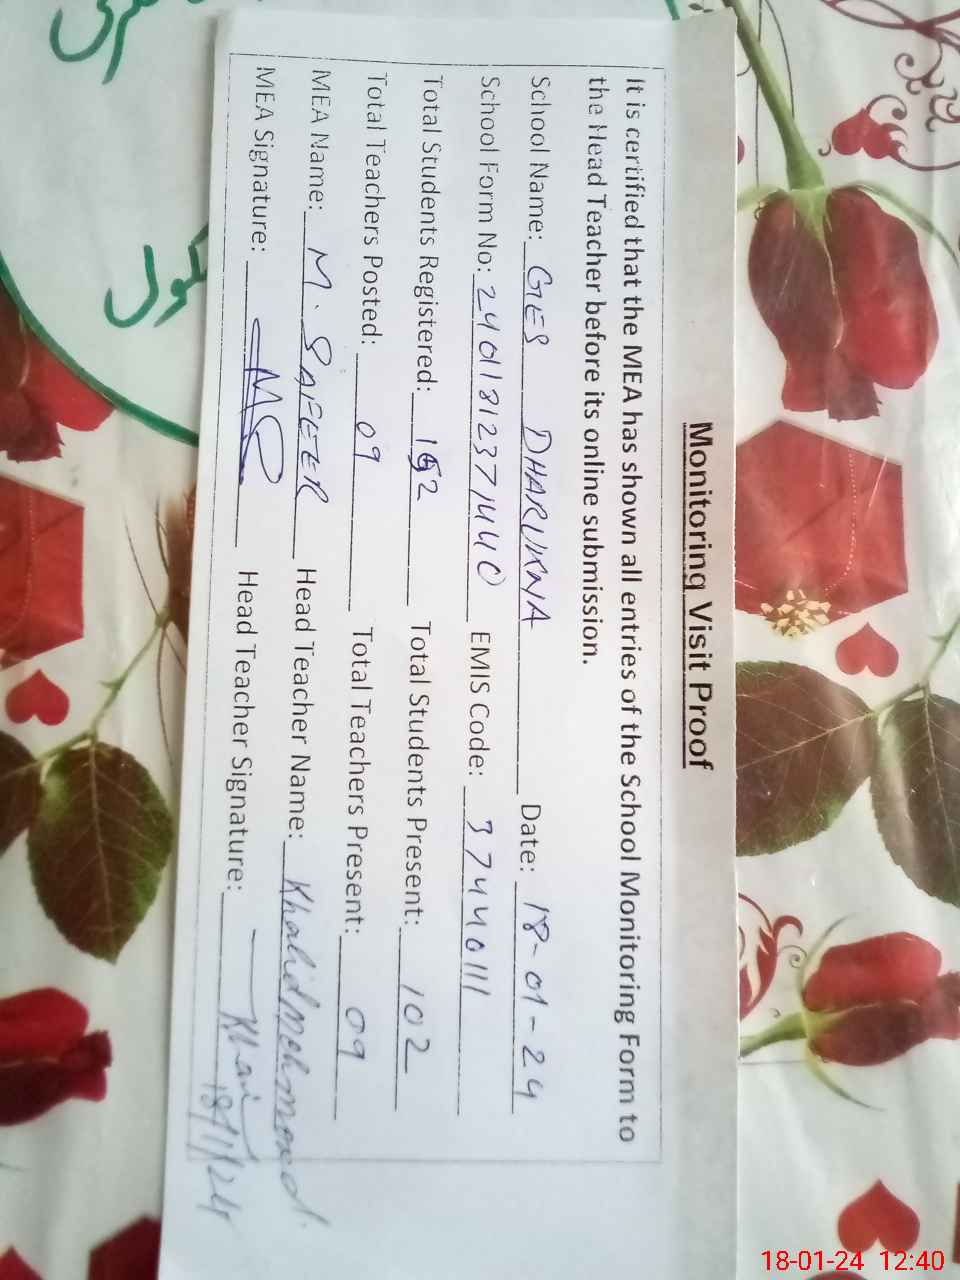 Monitoring Visit Proof
It is certified that the MEA has shown all entries of the School Monitoring Form to
the Head Teacher before its online submission.
School Name: GES DHARUKNA Date: 18-01-24
School Form No: 24011812371440 EMIS Code: 37440111
Total Students Registered: 152 Total Students Present: 102
Total Teachers Posted: 09 Total Teachers Present: 09
MEA Name: M. SAFEER Head Teacher Name: Khalid Mehmood
MEA Signature: Head Teacher Signature:
18/1/24
18-01-24 12:40